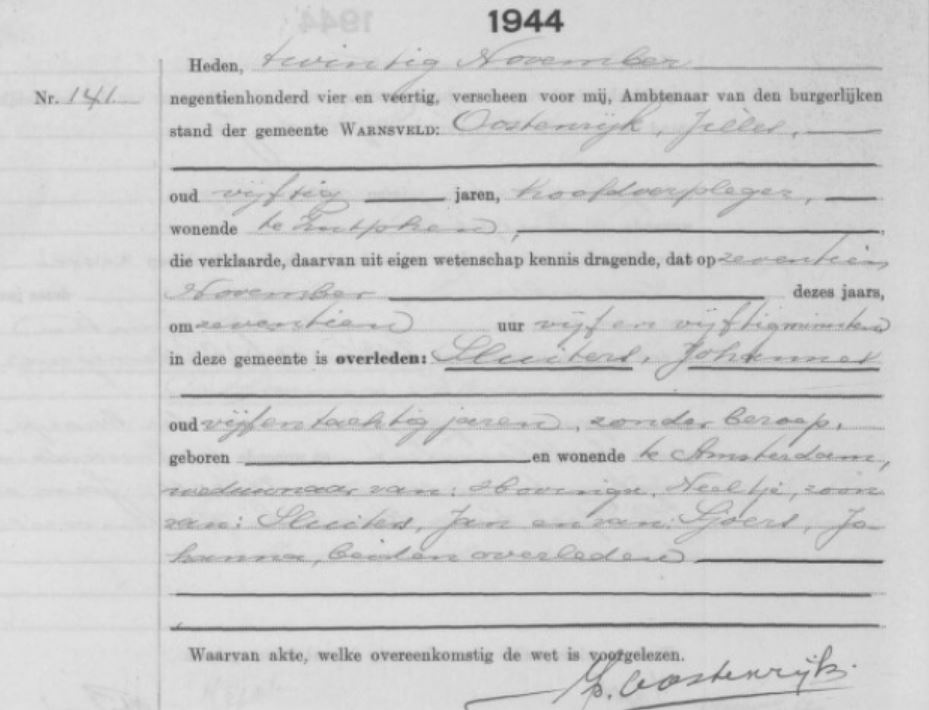 1944
Heden, twintig November
Nr. 141 negentienhonderd vier en veertig, verscheen voor mij, Ambtenaar van den burgerlijken
stand der gemeente WARNSVELD: Oostenrijk, Jilles,
oud vijftig jaren, hoofdverpleger,
wonende te Zutphen,
die verklaarde, daarvan uit eigen wetenschap kennis dragende, dat op zeventien
November dezes jaars,
om zeventien uur vijf en vijftig minuten
in deze gemeente is overleden: Sluiters, Johannes
oud vijfentachtig jaren, zonder beroep,
geboren en wonende te Amsterdam,
weduwnaar van: Neeltje, zoon
van: Sluiters, Jan en van: Sjoers, Jo-
hanna, beiden overleden
Waarvan akte, welke overeenkomstig de wet is voorgelezen.
Oostenrijk.